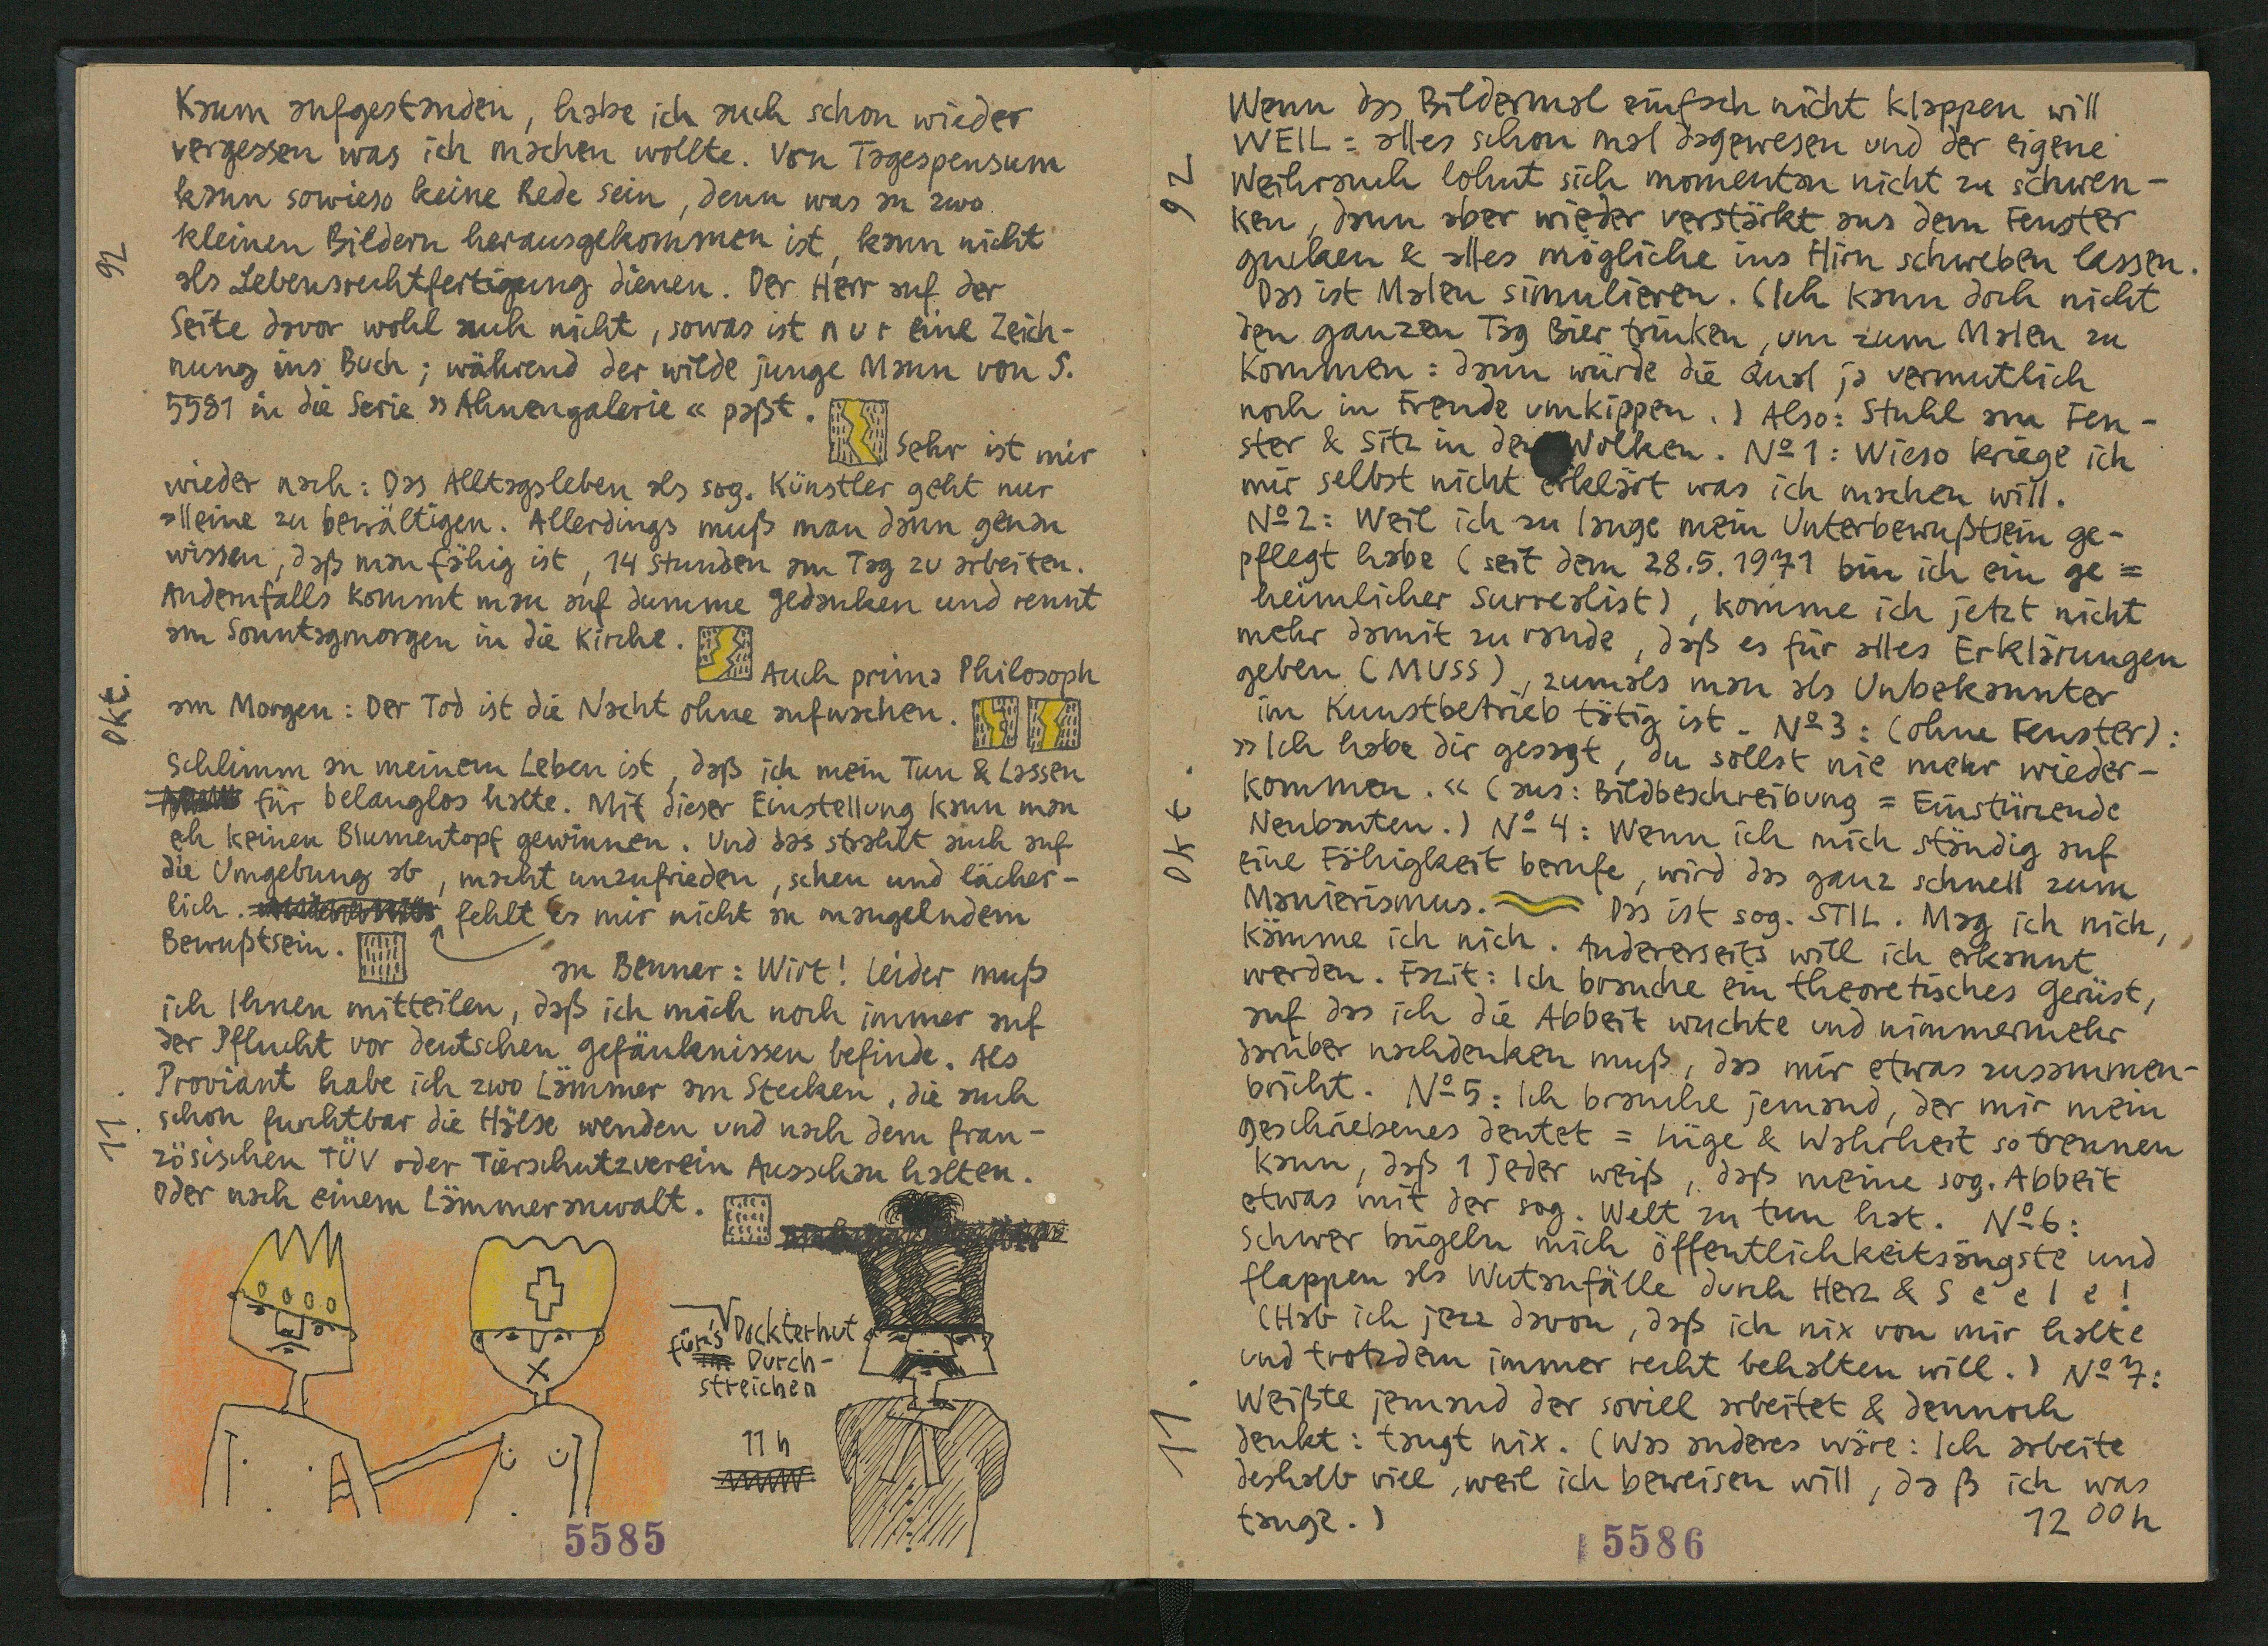 Kaum aufgestanden, habe ich auch schon wieder
vergessen was ich machen wollte. Von Tagespensum
kann sowieso keine Rede sein, denn was an zwo
kleinen Bildern herausgekommen ist, kann nicht
als Lebensrechtfertigung dienen. Der Herr auf der
Seite davor wohl auch nicht, sowas ist nur eine Zeich-
nung ins Buch; während der wilde junge Mann von S.
5581 in die Serie »Ahnengalerie« paßt.
Sehr ist mir
wieder nach: Das Alltagsleben als sog. Künstler geht nur
alleine zu bewältigen. Allerdings muß man dann genau
wissen, daß man fähig ist, 14 Stunden am Tag zu arbeiten.
Andernfalls kommt man auf dumme Gedanken und rennt
am Sonntagmorgen in die Kirche.
Auch prima Philosoph
am Morgen: Der Tod ist die Nacht ohne aufwachen.
Schlimm an meinem Leben ist, daß ich mein Tun & Lassen
für belanglos halte. Mit dieser Einstellung kann man
eh keinen Blumentopf gewinnen. Und das strahlt auch auf
die Umgebung ab, macht unzufrieden, scheu und lächer-
lich. fehlt es mir nicht an mangelndem
Bewußtsein.
an Benner: Wirt! Leider muß
ich Ihnen mitteilen, daß ich mich noch immer auf
der Pflucht vor deutschen Gefänknissen befinde. Als
Proviant habe ich zwo Lämmer am Stecken, die auch
schon furchtbar die Hälse wenden und nach dem fran-
zösischen TÜV oder Tierschutzverein Ausschau halten.
Oder nach einem Lämmeranwalt.
Dockterhut
für's Durch-
streichen
11 h
92
Okt.
11.
5585
Wenn das Bildermal einfach nicht klappen will
WEIL = alles schon mal dagewesen und der eigene
Weihrauch lohnt sich momentan nicht zu schwen-
ken, dann aber wieder verstärkt aus dem Fenster
gucken & alles mögliche ins Hirn schweben lassen.
Das ist Malen simulieren. (Ich kann doch nicht
den ganzen Tag Bier trinken, um zum Malen zu
kommen: dann würde die Qual ja vermutlich
noch in Freude umkippen.) Also: Stuhl am Fen-
ster & Sitz in den Wolken. Nº 1: Wieso kriege ich
mir selbst nicht erklärt was ich machen will.
Nº 2: Weil ich zu lange mein Unterbewußtsein ge-
pflegt habe (seit dem 28.5.1971 bin ich ein ge=
heimlicher Surrealist), komme ich jetzt nicht
mehr damit zu rande, daß es für alles Erklärungen
geben (MUSS), zumals man als Unbekannter
im Kunstbetrieb tätig ist. Nº 3: (ohne Fenster):
»Ich habe dir gesagt, du sollst nie mehr wieder-
kommen.« (aus: Bildbeschreibung = Einstürzende
Neubauten.) Nº 4: Wenn ich mich ständig auf
eine Fähigkeit berufe, wird das ganz schnell zum
Manierismus. Das ist sog. STIL. Mag ich nich,
kämme ich nich. Andererseits will ich erkannt
werden. Fazit: Ich brauche ein theoretisches Gerüst,
auf das ich die Abbeit wuchte und nimmermehr
darüber nachdenken muß, das mir etwas zusammen-
bricht. Nº 5: Ich brauche jemand, der mir mein
Geschriebenes deutet = Lüge & Wahrheit so trennen
kann, daß 1 jeder weiß, daß meine sog. Abbeit
etwas mit der sog. Welt zu tun hat. Nº 6:
Schwer bügeln mich Öffentlichkeitsängste und
flappen als Wutanfälle durch Herz & S e e l e !
(Hab ich jezz davon, daß ich nix von mir halte
und trotzdem immer recht behalten will.) Nº 7:
Weißte jemand der soviel arbeitet & dennoch
denkt: taugt nix. (Was anderes wäre: Ich arbeite
deshalb viel, weil ich beweisen will, daß ich was
tauge.)
12 00 h
92
Okt.
11.
5586